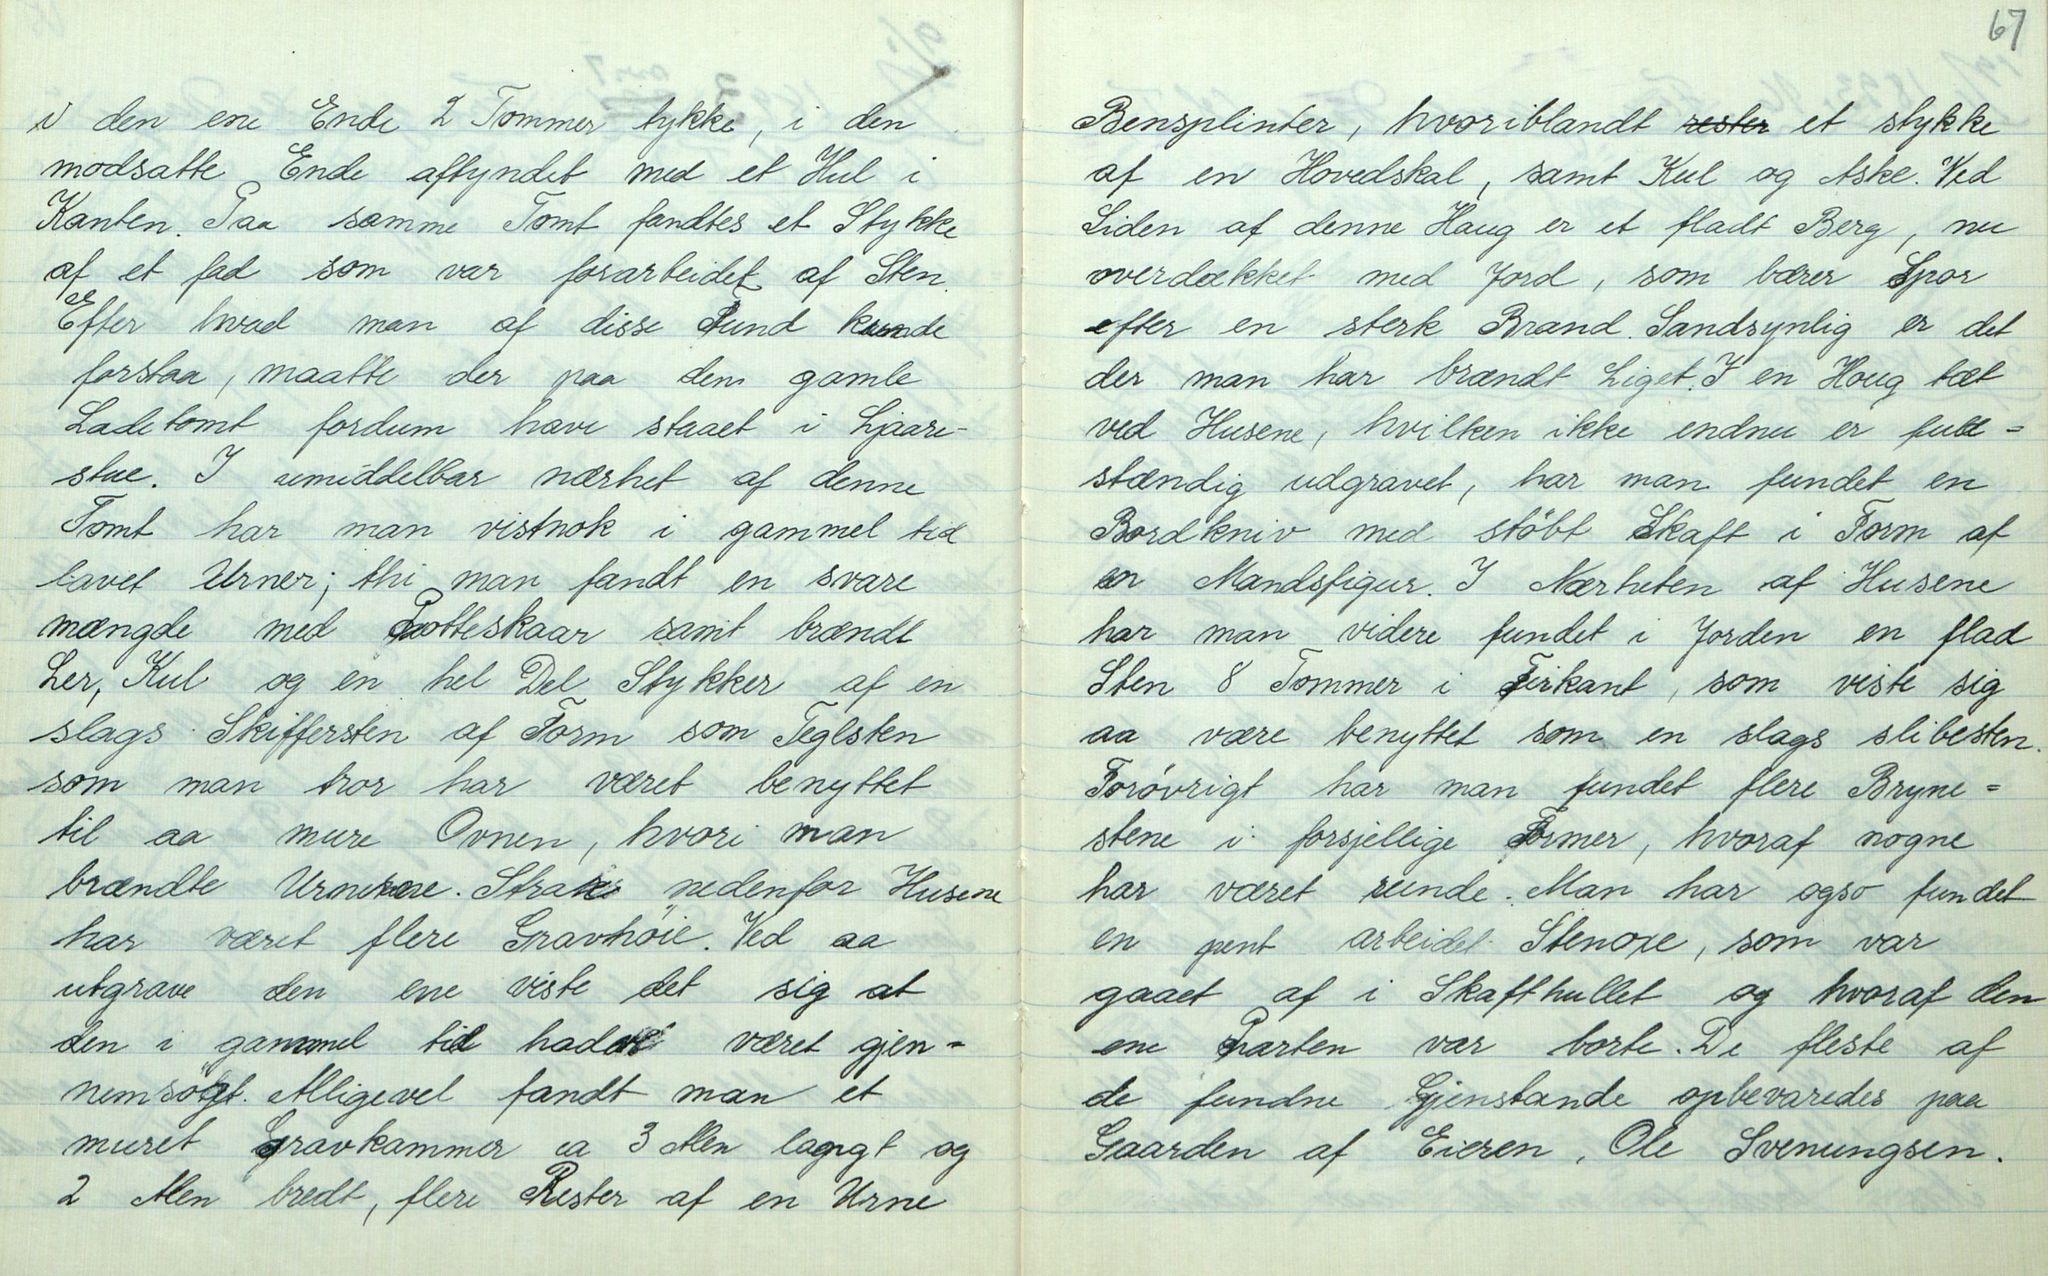 i den ene Ende 2 Tommer tykke, i den
modsatte Ende aftyndet med et Hul i
Kanten. Paa samme Tomt fandtes et Stykke
af et fad som var forarbeidet af Sten.
Efter hvad man af disse Fund kunde
forstaa, maatte der paa den gamle
Ladetomt fordum have staaet i Ljaare-
stue. I umiddelbar nærhet af denne
Tomt har man vistnok i gammel tid
lavet Urner; thi man fandt en svare
mængde med Potteskaar samt brændt
Ler, Kul og en hel Del Stykker af en
slags Skiffersten af Form som Teglsten
som man tror har været benyttet
til aa mure Ovnen, hvori man
brændte Urnerne. Straks nedenfor Husene
har været flere Gravhöie. Ved aa
utgrave den ene viste det sig at
den i gammel tid hadde været gjen-
nemsögt. Alligevel fandt man et
muret Gravkammer ca 3 Alen langt og
2 Alen bredt, flere Rester af en Urne
67
Bensplinter, hvoriblandt rester et stykke
af en Hovedskal, samt Kul og Aske. Ved
Siden af denne Haug er et fladt Berg, nu
overdækket med Jord, som bærer Spor
efter en sterk Brand. Sandsynlig er det
der man har brændt Liget. I en Houg tæt
ved Husene, hvilken ikke endnu er fuld=
stændig udgravet, har man fundet en
Bordkniv med stöbt Skaft i Form af
en Mandsfigur. I Nærheten af Husene
har man videre fundet i Jorden en flad
Sten 8 Tommer i Firkant, som viste sig
aa være benyttet som en slags slibesten.
Forövrigt har man fundet flere Bryne=
stene i forsjellige Former, hvoraf nogne
har været runde. Man har ogso fundet
en pent arbeidet Stenoxe, som var
gaaet af i Skafthullet og hvoraf den
ene Parten var borte. De fleste af
de fundne Gjenstande opbevaredes paa
Gaarden af Eieren, Ole Svenungsen.